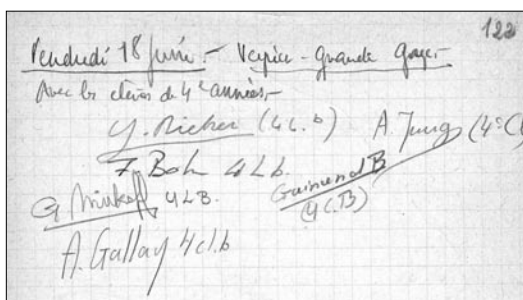 122
Vendredi 18 juin.- Veyrier - Grande Gorge.-
Avec les élèves de 4e années.-
Y. Richer (4 c. b) A. Jung (4e C)
F. Boh 4 L b.
G Minkoff 4 L B. Guimend B
(4 C. B)
A. Gallay 4 cl. b